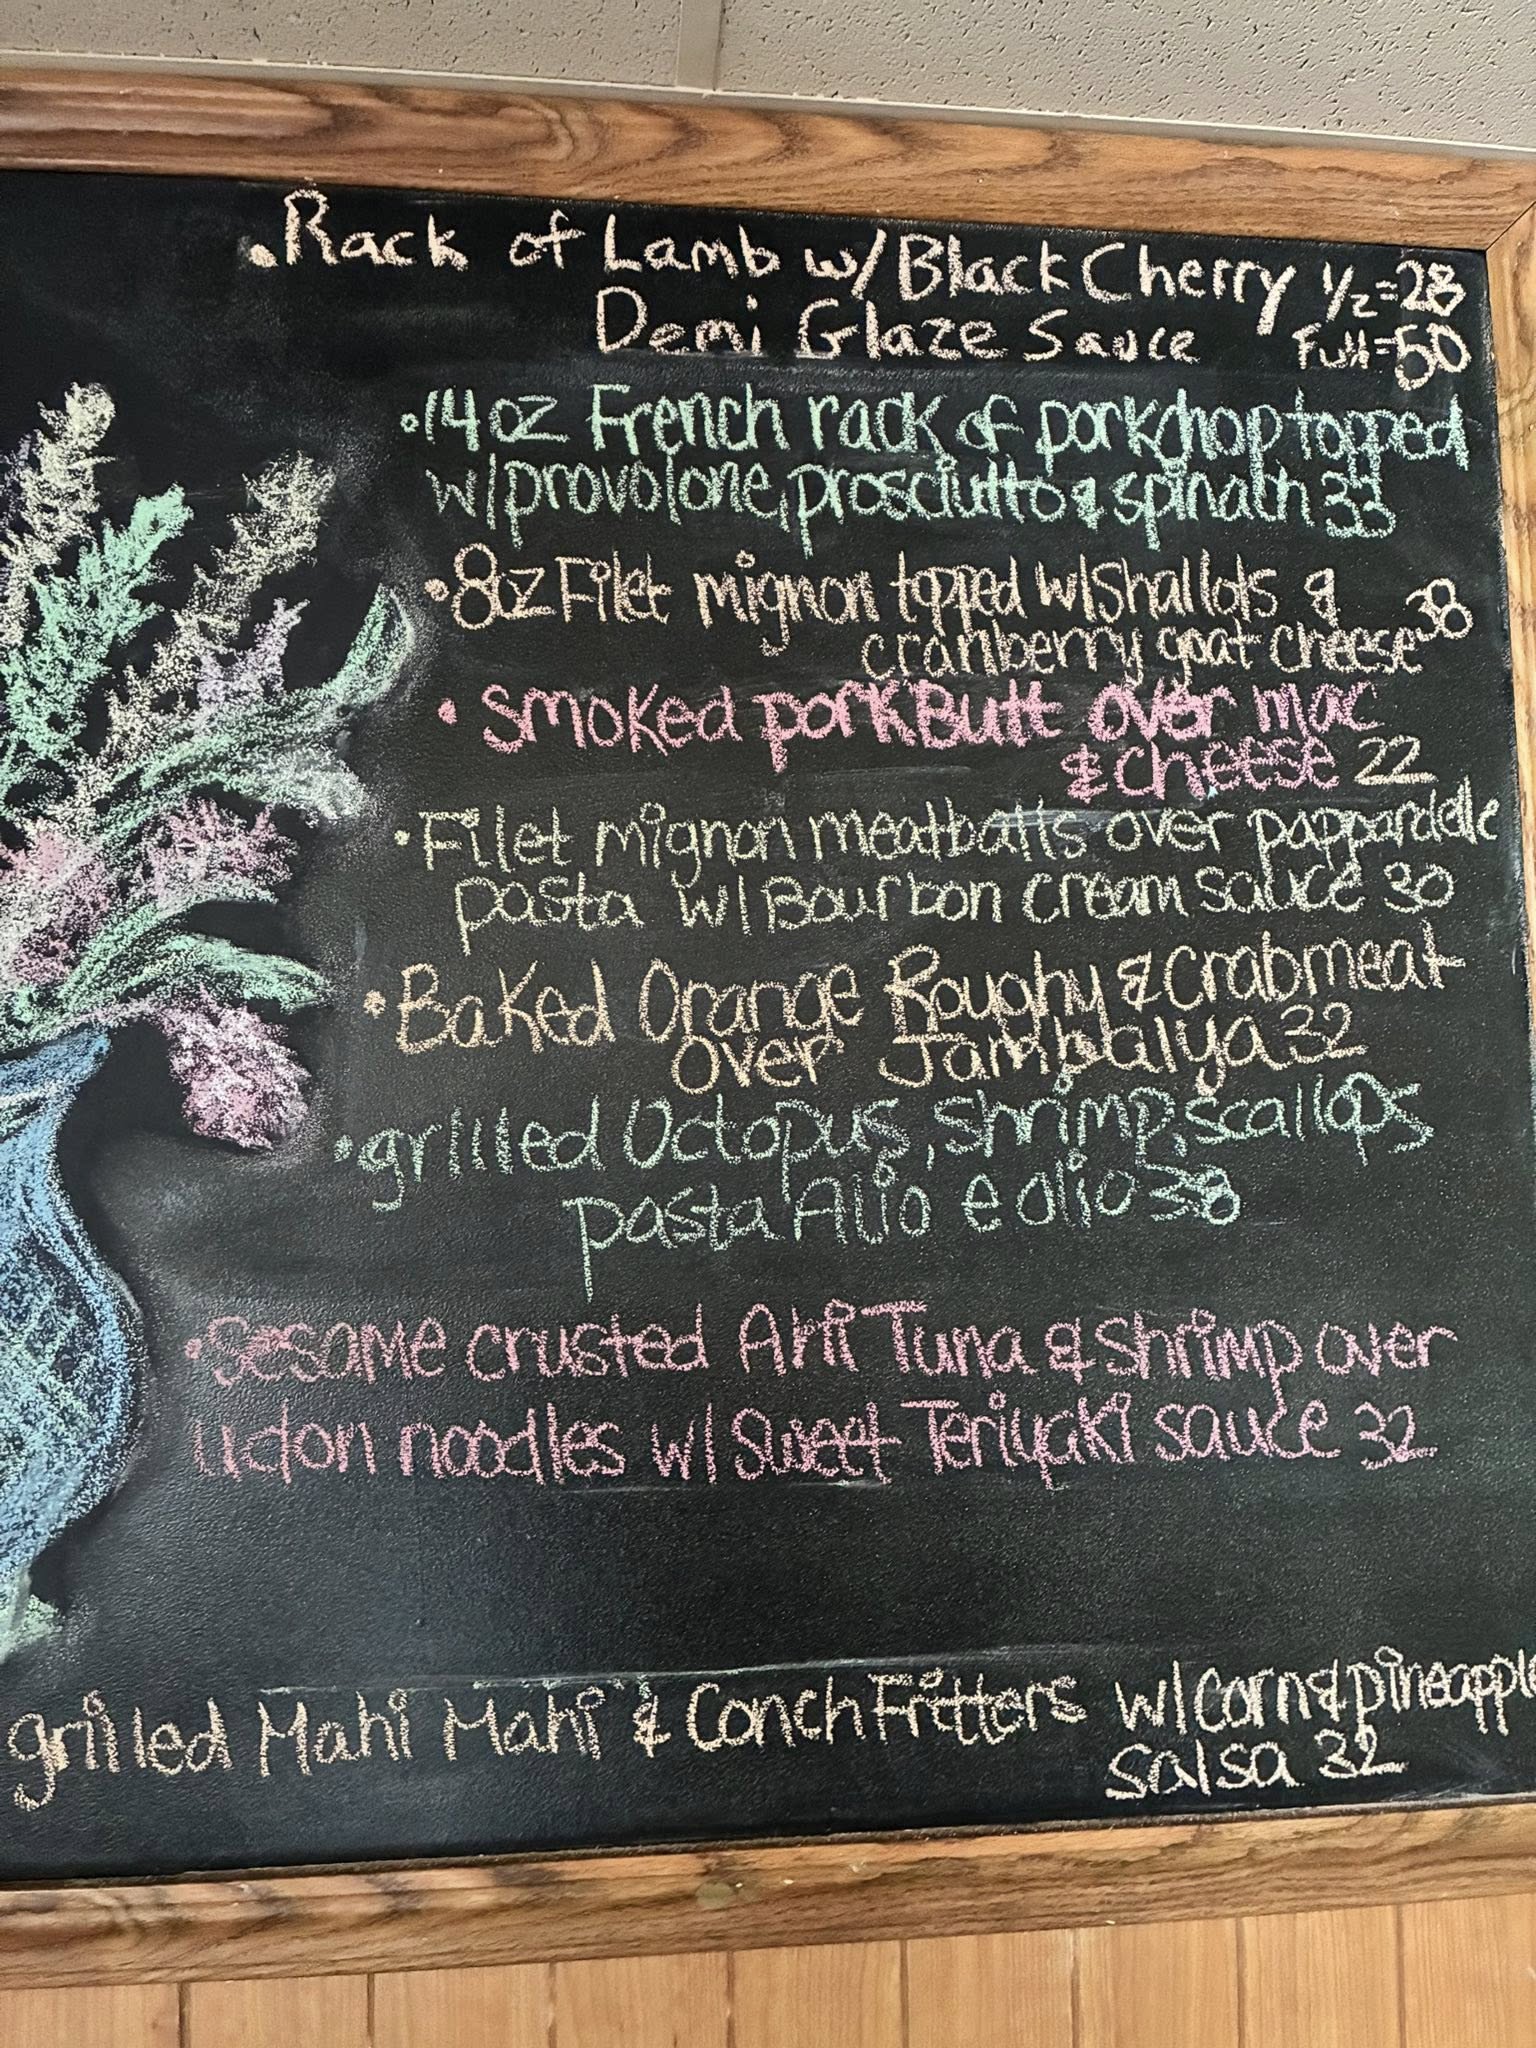 • Rack of Lamb w/ Black Cherry 1/2=28
Demi Glaze Sauce Full=50
• 14oz French rack of porkchop topped
w/provolone, prosciutto & spinach 33
• 8oz Filet mignon topped w/shallots &
cranberry goat cheese 38
• Smoked pork Butt over mac
& cheese 22
• Filet mignon meatballs over pappardelle
pasta w/ Bourbon cream sauce 30
• Baked Orange Roughy & Crabmeat
over Jambalya 32
• grilled Octopus, shrimp, scallops
pasta Alio e olio 38
• Sesame crusted Ahi Tuna & shrimp over
udon noodles w/ Sweet Teriyaki sauce 32
grilled Mahi Mahi & Conch Fritters w/ corn & pineapple
salsa 32